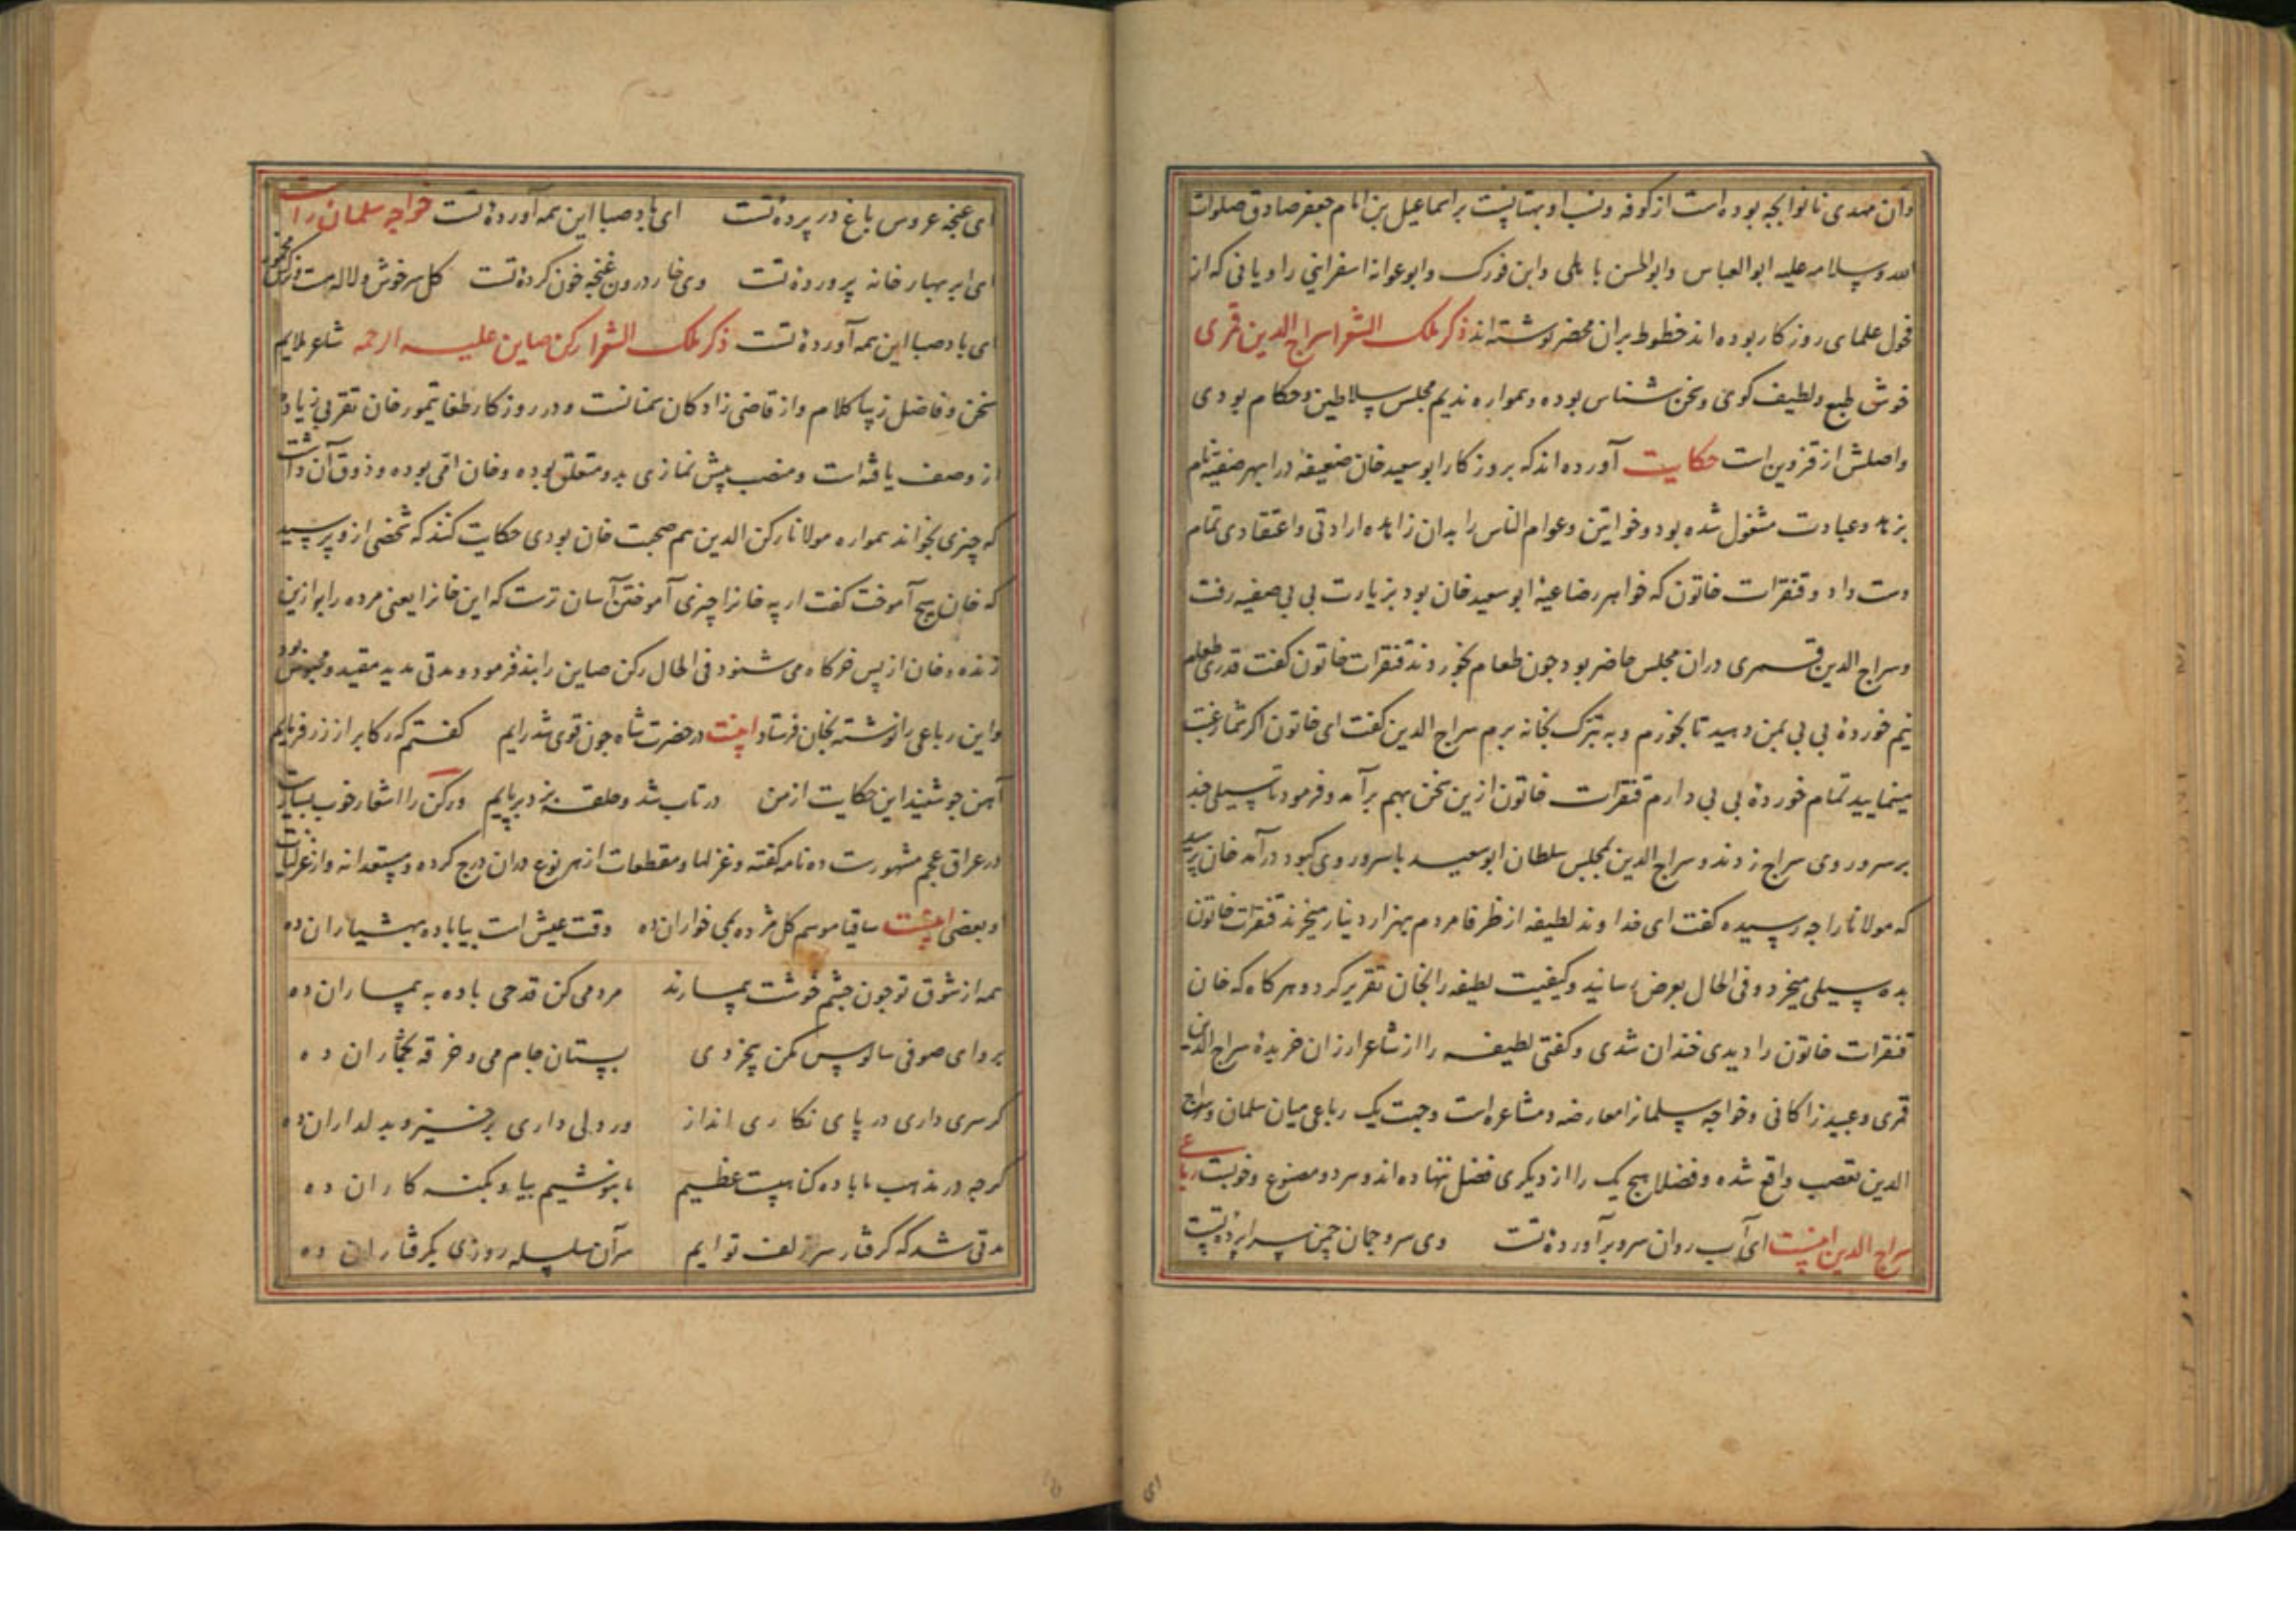 وان مهدی نانوابچه بوده است از کوفه ونسب او بهتانیست بر اسماعیل بن امام جعفر صادق صلوات
الله وسلامه علیه ابو العباس وابو الحسن باهلی وابن فورک وابو عوانه اسفراینی راویانی که از
فحول علمای روزکار بوده اند خطوط بران محضر نوشته اند ذکر ملک الشعرا سراج الدین قمری
خوش طبع ولطیف کوی وسخن شناس بوده وهمواره ندیم مجلس سلاطین وحکام بودی
واصلش از قزوین است حکایت آورده اند که بروزکار ابو سعید خان ضعیفهٔ در ابهر صفیه نام
بزهد وعبادت مشغول شده بود وخواتین وعوام الناس را بدان زاهده ارادتی واعتقادی تمام
دست داد وقنقرات خاتون که خواهر رضاعیهٔ ابو سعید خان بود بزیارت بی بی صفیه رفت
وسراج الدین قمری دران مجلس حاضر بود جون طعام بخوردند قنقرات خاتون کفت قدری طعام
نیم خوردهٔ بی بی بمن دهید تا بخورم وبه تبرک بخانه برم سراج الدین کفت ای خاتون اکر شما رغبت
مینمایید تمام خوردهٔ بی بی دارم قنقرات خاتون ازین سخن بهم برآمد وفرمود تا سیلی جند
بر سر وروی سراج زدند وسراج الدین بمجلس سلطان ابو سعید با سر وروی کبود درآمد خان پرسید
که مولانا را جه رسیده کفت ای خداوند لطیفه از ظرفا مردم بهزار دینار میخرند قنقرات خاتون
بده سیلی میخرد وفی الحال بعرض رسانید وکیفیت لطیفه را بخان تقریر کرد وهرکاه که خان
قنقرات خاتون را دیدی خندان شدی وکفتی لطیفه را از شاعر ارزان خریدهٔ سراج الدین
قمری وعبید زاکانی وخواجه سلمان را معارضه ومشاعره است وجهت یک رباعی میان سلمان وسراج
الدین تعصب واقع شده وفضلا هیج یک را از دیکری فضل ننهاده اند وهر دو مصنوع وخوبست رباعی
سراج الدین اینست ای آب روان سرو برآوردهٔ تست وی سرو جمان جمن سراپردهٔ تست
ای غنجه عروس باغ در پردهٔ تست ای باد صبا این همه آوردهٔ تست خواجه سلمان راست
ای ابر بهار خانه پروردهٔ تست وی خار درون غنجه خون کردهٔ تست کل سرخوش ولاله مست ونرکس مخمور
ای باد صبا این همه آوردهٔ تست ذکر ملک الشعرا رکن صاین علیه الرحمه شاعر ملایم
سخن وفاضل زیبا کلام واز قاضی زادکان سمنانست ودر روزکار طغا یتمور خان تقربی زیاده
از وصف یافته است ومنصب پیش نمازی بدو متعلق بوده وخان امی بوده وذوق آن داشت
که چیزی بخواند همواره مولانا رکن الدین هم صحبت خان بودی حکایت کنند که شخصی ازو پرسید
که خان هیج آموخت کفت ار په خانرا چیزی آموختن آسان ترست که این خانرا یعنی مرده را به ازین
زنده وخان از پس خرکاه می شنود فی الحال رکن صاین را بند فرمود ومدتی مدید مقید ومحبوس بود
واین رباعی را نوشته بخان فرستاد اینست در حضرت شاه جون قوی شد رایم کفتم که رکاب را ز زر فرمایم
آهن جو شنید این حکایت از من در تاب شد وحلقه بزد بر پایم ورکن را اشعار خوب بسیارست
در عراق عجم مشهورست ده نامه کفته وغزلها ومقطعات از هر نوع دران درج کرده ومستعدانه واز غزلیات
او بعضی اینست ساقیا موسم کل مژده بمی خواران ده وقت عیش است بیا باده بهشیاران ده
همه از شوق تو جون جشم خوشت بیمارند مردمی کن قدحی باده به بیماران ده
برو ای صوفی سالوس مکن پیخردی بستان جام می وخرقه بخماران ده
کر سری داری در پای نکاری انداز ور دلی داری برخیز وبدلداران ده
کرجه در مذهب ما باده کناهیست عظیم ما بنوشیم بیا وبکنه کاران ده
مدتی شد که کرفتار سر زلف توایم سر آن سلسله روزی بکرفتاران ده